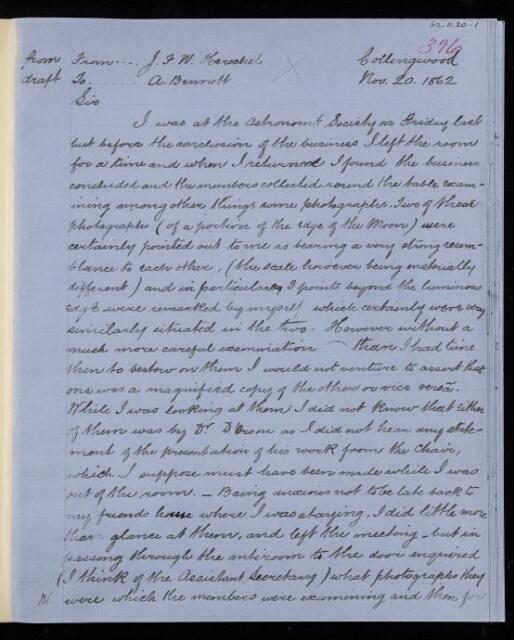 62.11.20-1
396
from From.... J. F. W. Herschel Collingwood
draft To...... A. Bennett Nov. 20. 1862
Sir
I was at the Astronoml. Society on Friday last
but before the conclusion of the business I left the room
for a time and when I returned I found the business
concluded and the members collected round the table exam-
ining among other things some photographs. Two of these
photographs (of a portion of the edge of the Moon) were
certainly pointed out to me as bearing a very strong resem-
blance to each other, (the scale however being materially
different) and in particular 3 points beyond the luminous
edge were remarked by myself which certainly were very
similarly situated in the two. However without a
much more careful examination than I had time
then to bestow on them I would not venture to assert that
one was a magnified copy of the other or vice versa.
While I was looking at them I did not know that either
of them was by Dr. D'Orsan as I did not hear any state-
ment of the presentation of his work from the Chair,
which I suppose must have been made while I was
out of the room. — Being anxious not to be late back to
my friends house where I was staying, I did little more
than glance at them, and left the meeting — but in
passing through the anteroom to the door enquired
(I think of the Assistant Secretary) what photographs they
were which the members were examining and then for